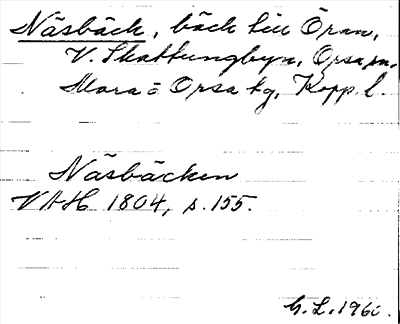 Näsbäck, bäck till Öran,
V. Skattungbyn, Orsa sn,
Mora o Orsa tg, Kopp. l.
Näsbäcken
VAH 1804, s. 155.
G. L. 1960.